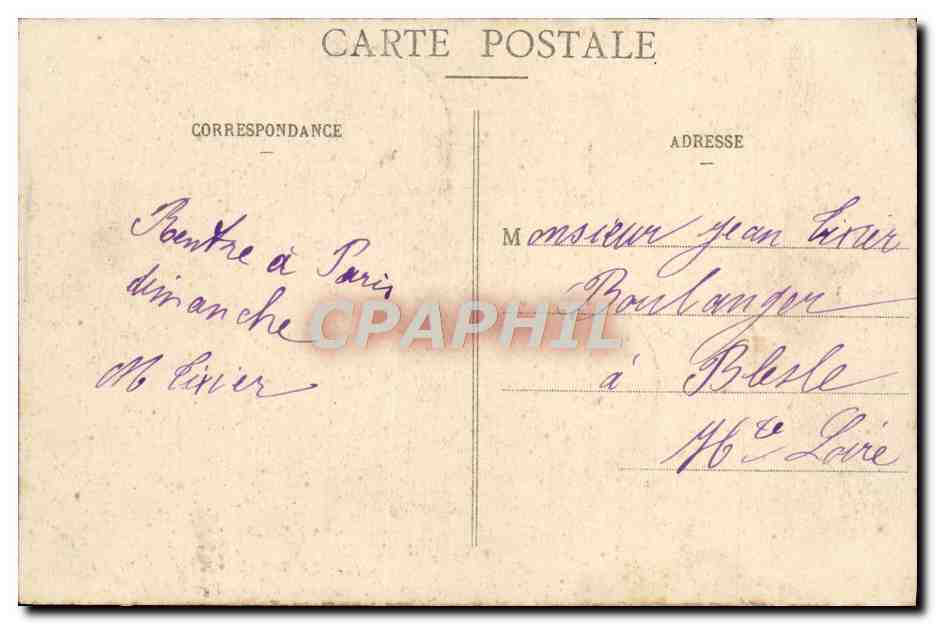 CARTE POSTALE
CORRESPONDANCE
Rentre à Paris
dimanche
M Tixier
ADRESSE
Monsieur Jean Tixier
Boulanger
à Blesle
Hte Loire
CPAPHIL